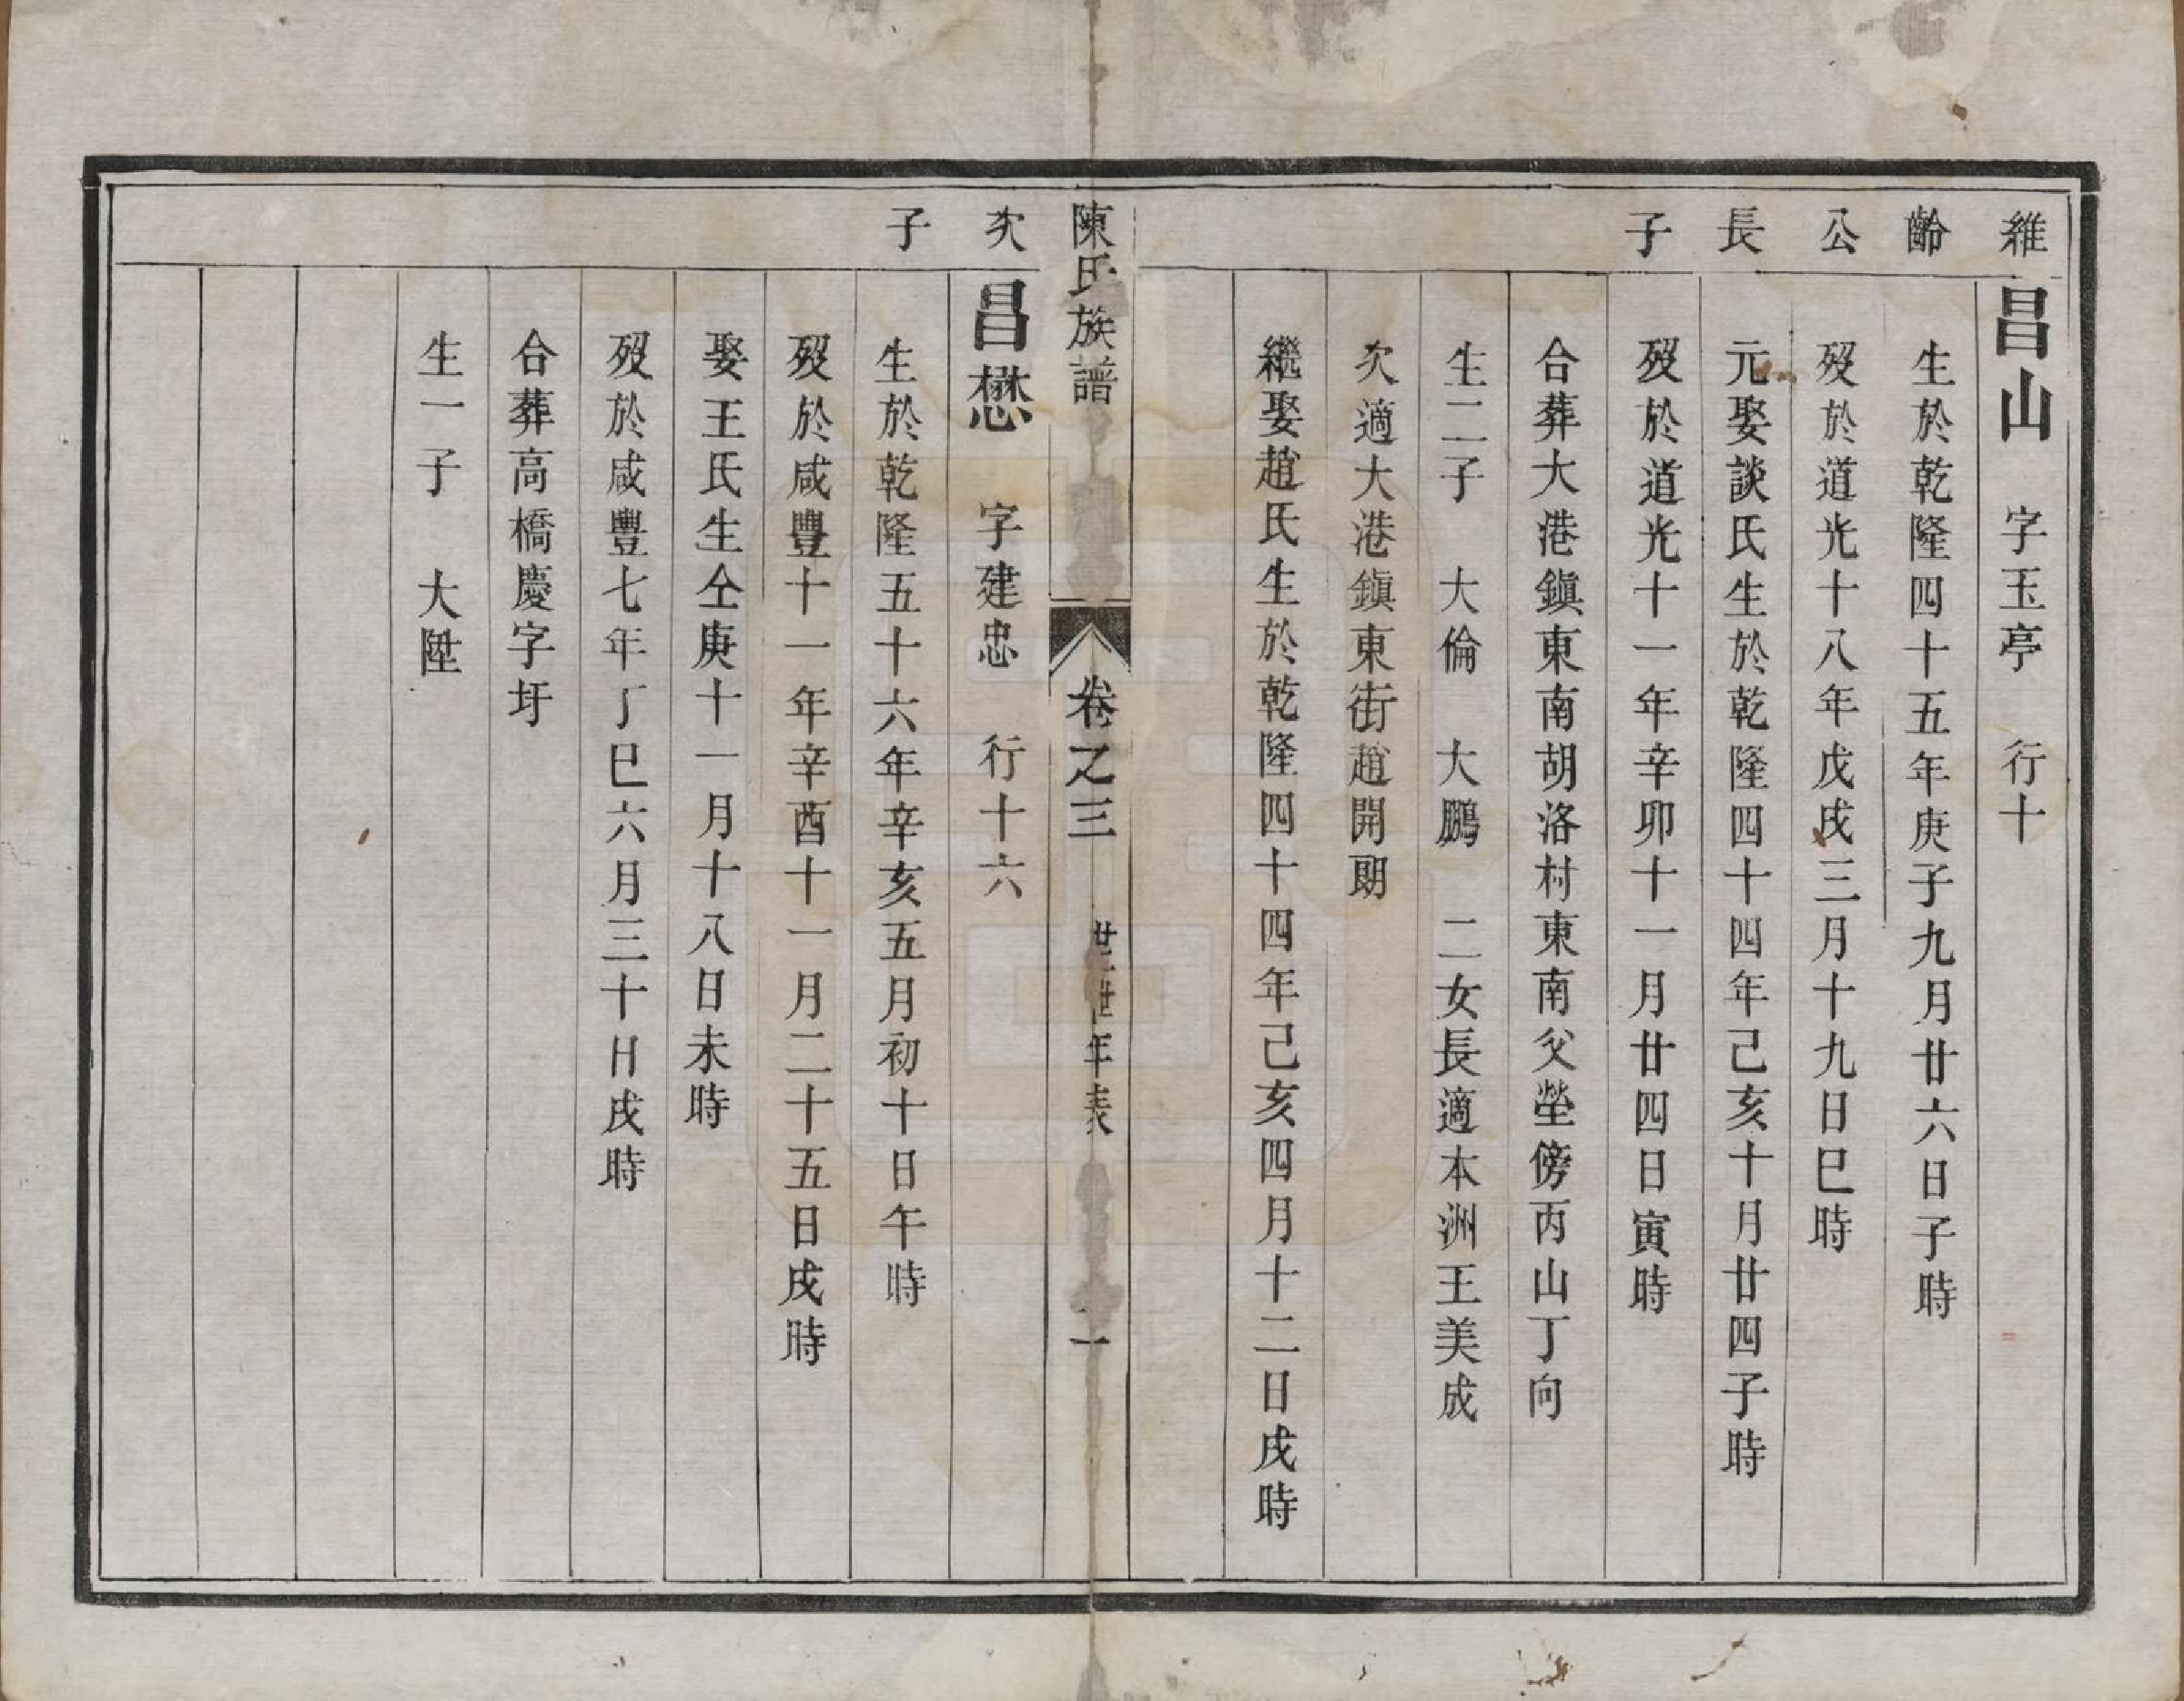 維齡公長子
昌山　字玉亭　行十
生於乾隆四十五年庚子九月廿六日子時
歿於道光十八年戊戌三月十九日巳時
元娶談氏生於乾隆四十四年己亥十月廿四子時
歿於道光十一年辛卯十一月廿四日寅時
合葬大港鎭東南胡洛村東南父塋傍丙山丁向
生二子　大倫　大鵬　二女長適本洲王美成
次適大港鎭東街趙開朗
繼娶趙氏生於乾隆四十四年己亥四月十二日戌時
陳氏族譜
卷之三
世世年表
一
次子
昌懋　字建忠　行十六
生於乾隆五十六年辛亥五月初十日午時
歿於咸豐十一年辛酉十一月二十五日戌時
娶王氏生仝庚十一月十八日未時
歿於咸豐七年丁巳六月三十日戌時
合葬高橋慶字圩
生一子　大陞